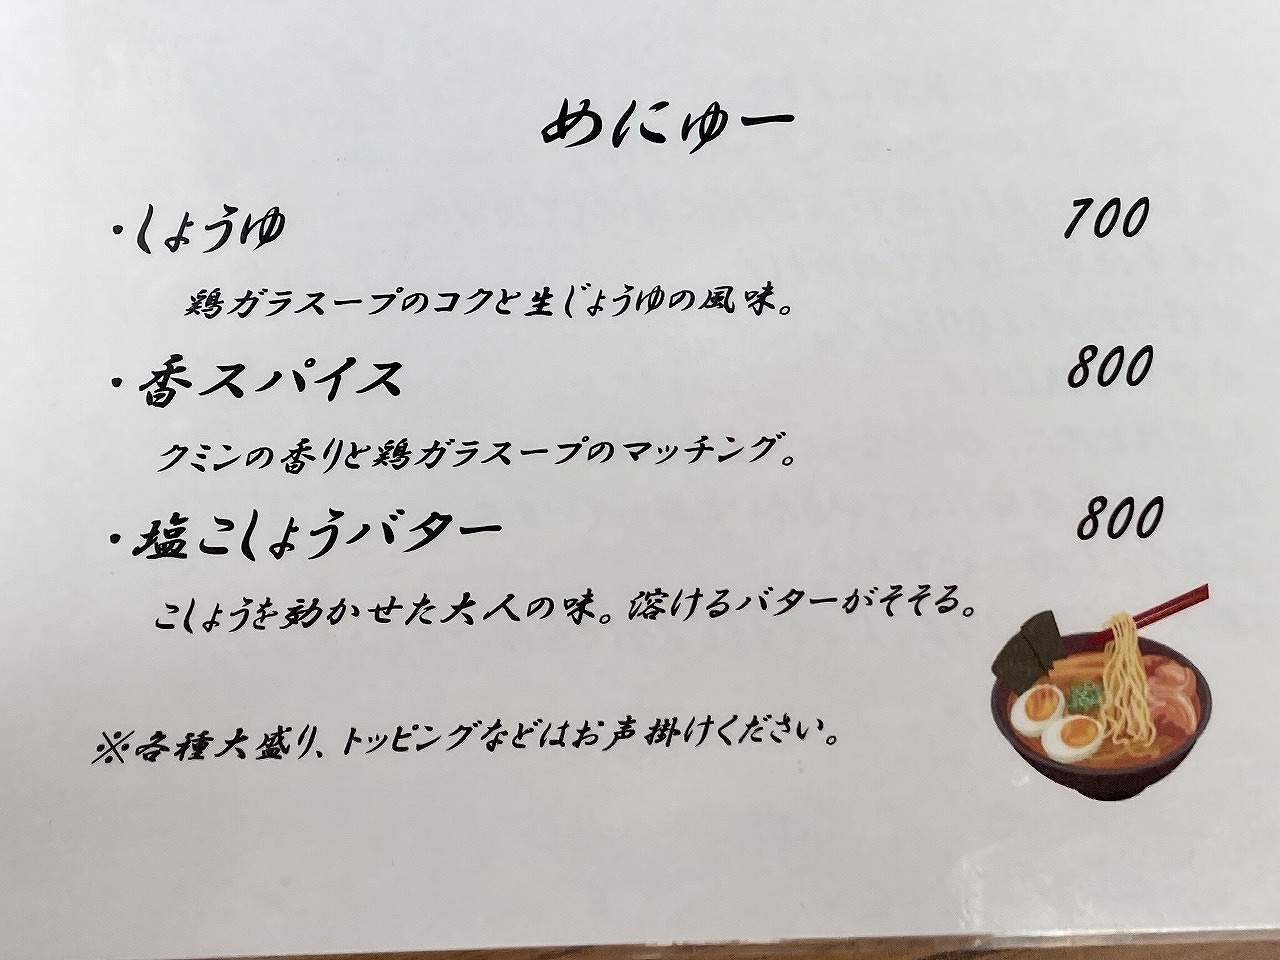 めにゅー
・しょうゆ 700
鶏ガラスープのコクと生じょうゆの風味。
・香スパイス 800
クミンの香りと鶏ガラスープのマッチング。
・塩こしょうバター 800
こしょうを効かせた大人の味。溶けるバターがそそる。
※各種大盛り、トッピングなどはお声掛けください。